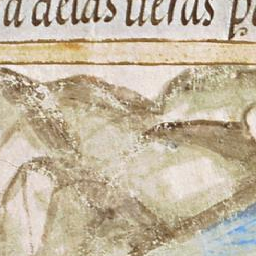 a delas ueras p